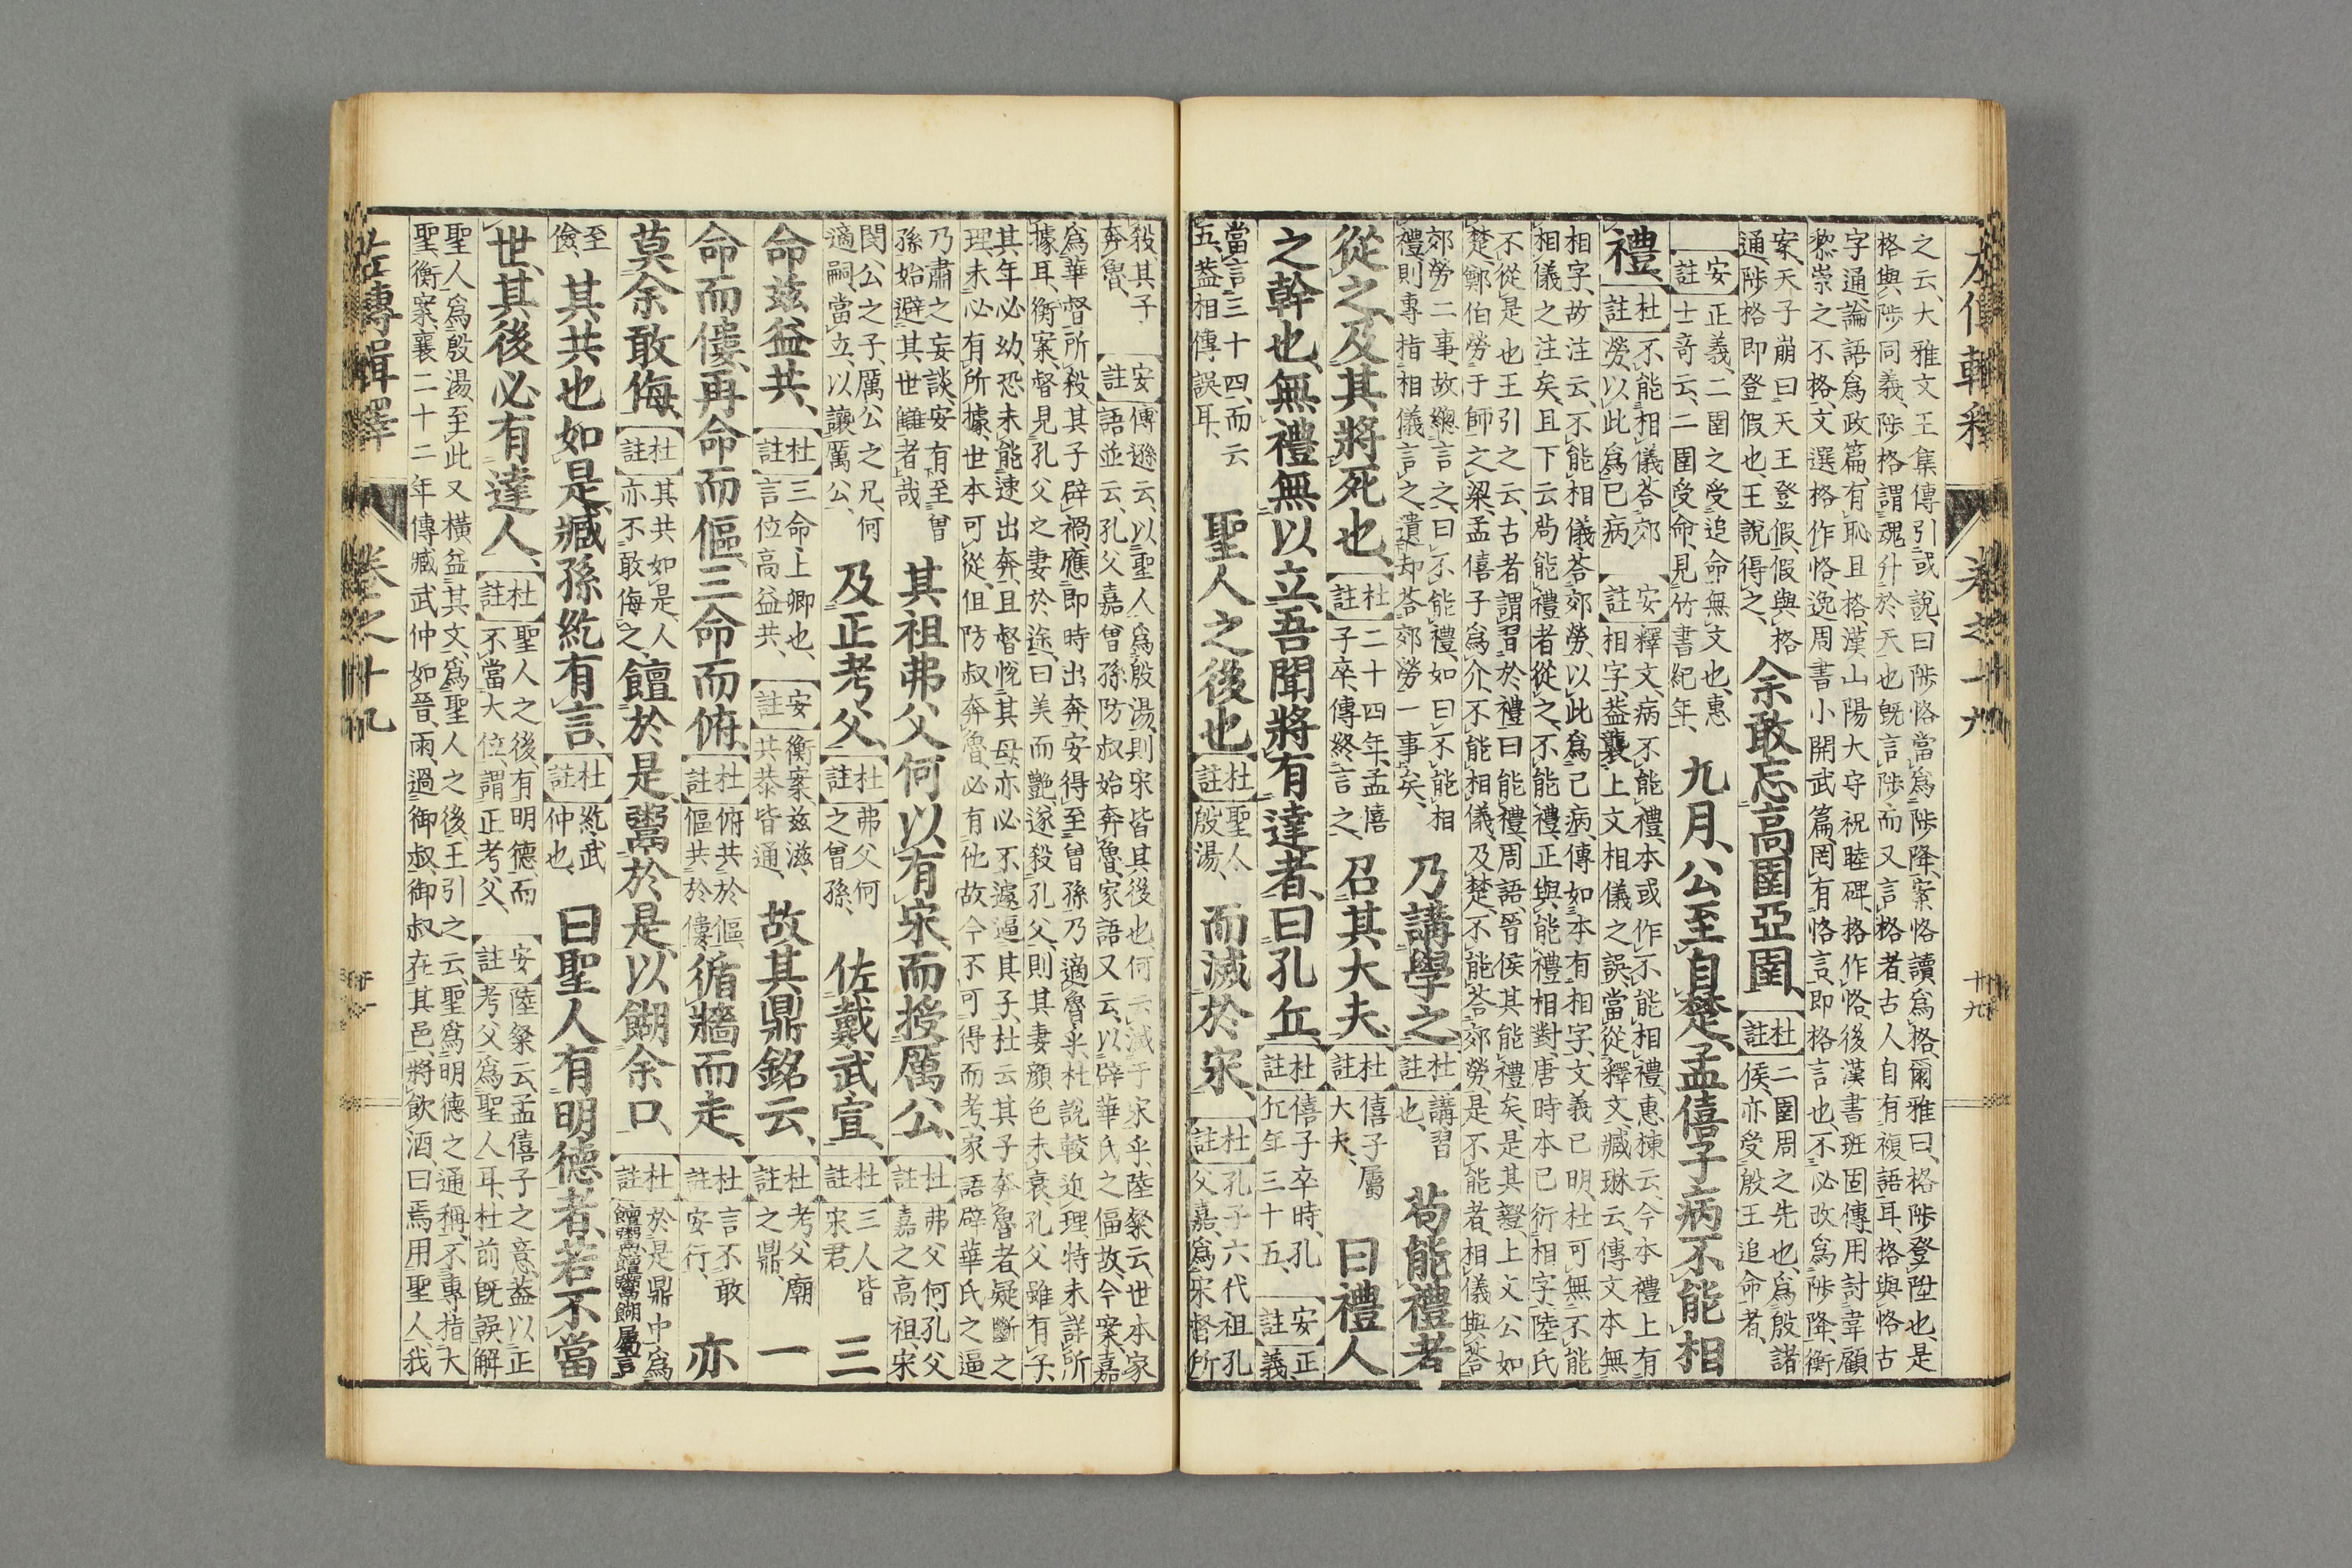 左傳輯釋 卷之十九 十九
之云、大雅文王集傳引或說、曰陟恪當爲陟降、案恪讀爲格、爾雅曰、格陟登陞也、是
格與陟同義、陟格謂魂升於天也、既言陟、而又言格者、古人自有複語耳、格與恪古
字通、論語爲政篇、有恥且格、漢山陽大守祝睦碑、格作恪、後漢書班固傳、用討韋顧
黎崇之不格、文選格作恪、逸周書小開武篇、罔有恪言、即格言也、不必改爲陟降、衡
案、天子崩曰天王登假、假與格
通、陟格即登假也、王說得之、
余敢忘高圉亞圉、
杜註 二圉周之先也、爲殷諸
侯、亦受殷王追命者、
安註 正義、二圉之受追命無文也、惠
士奇云、二圉受命、見竹書紀年、
九月、公至自楚、孟僖子病不能相
禮、
杜註 不能相儀荅郊
勞、以此爲已病、
安註 釋文、病不能禮、本或作不能相禮、惠棟云、今本禮上有
相字、葢襲上文相儀之誤、當從釋文、臧琳云、傳文本無
相字、故注云、不能相儀荅郊勞、以此爲己病、傳如本有相字、文義已明、杜可無不能
相儀之注矣、且下云苟能禮者從之、不能禮、正與能禮相對、唐時本已衍相字、陸氏
不從是也、王引之云、古者謂習於禮曰能禮、周語、晉侯其能禮矣、是其證、上文公如
楚、鄭伯勞于師之梁、孟僖子爲介、不能相儀、及楚、不能荅郊勞、是不能者、相儀與荅
郊勞二事、故總言之、曰不能禮、如曰不能相
禮、則專指相儀言之、遺却荅郊勞一事矣、
乃講學之、
杜註 講習
也、
苟能禮者
從之、及其將死也、
杜註 二十四年、孟僖
子卒、傳終言之、
召其大夫、
杜註 僖子屬
大夫、
曰禮人
之幹也、無禮無以立、吾聞將有達者、曰孔丘、
杜註 僖子卒時、孔
丘年三十五、
安註 正
義、
當言三十四、而云
五、葢相傳誤耳、
聖人之後也、
杜註 聖人
殷湯、
而滅於宋、
杜註 孔子六代祖孔
父嘉、爲宋督所
殺、其子
奔魯、
安註 傳遜云、以聖人爲殷湯、則宋皆其後也、何云滅于宋乎、陸粲云、世本家
語並云、孔父嘉曾孫防叔始奔魯、家語又云、以辟華氏之偪故、今案、嘉
爲華督所殺、其子辟禍應即時出奔、安得至曾孫乃適魯乎、杜說較近理、特未詳所
據耳、衡案、督見孔父之妻於途、曰美而豔、遂殺孔父、則其妻顏色未衰、孔父雖有子、
其年必幼、恐未能速出奔、且督悅其母、亦必不遽逼其子、杜云其子奔魯者、疑斷之
理、未必有所據、世本可從、但防叔奔魯、必有他故、今不可得而考、家語辟華氏之逼
乃肅之妄談、安有至曾
孫始避其世讎者哉
其祖弗父何以有宋而授厲公、
杜註 弗父何、孔父
嘉之高祖、宋
閔公之子、厲公之兄、何
適嗣當立、以讓厲公、
及正考父、
杜註 弗父何
之曾孫、
佐戴武宣、
杜註 三人皆
宋君、
三
命玆益共、
杜註 三命上卿也、
言位高益共、
安註 衡案、玆滋、
共恭皆通、
故其鼎銘云、
杜註 考父廟
之鼎、
一
命而僂、再命而傴、三命而俯、
杜註 俯共於傴、
傴共於僂、
循牆而走、
杜註 言不敢
安行、
亦
莫余敢侮、
杜註 其共如是、人
亦不敢侮之、
饘於是、鬻於是、以餬余口、
杜註 於是鼎中、爲
饘鬻、饘鬻餬屬、言
至
儉、
其共也如是、臧孫紇有言、
杜註 紇武
仲也、
曰聖人有明德者、若不當
世、其後必有達人、
杜註 聖人之後、有明德、而
不當大位、謂正考父、
安註 陸粲云、孟僖子之意、葢以正
考父爲聖人耳、杜前既誤解
聖人爲殷湯、至此又橫益其文、爲聖人之後、王引之云、聖爲明德之通稱、不專指大
聖、衡案、襄二十二年傳、臧武仲如晉、雨、過御叔、御叔在其邑、將飲酒、曰焉用聖人、我
左傳輯釋 卷之十九